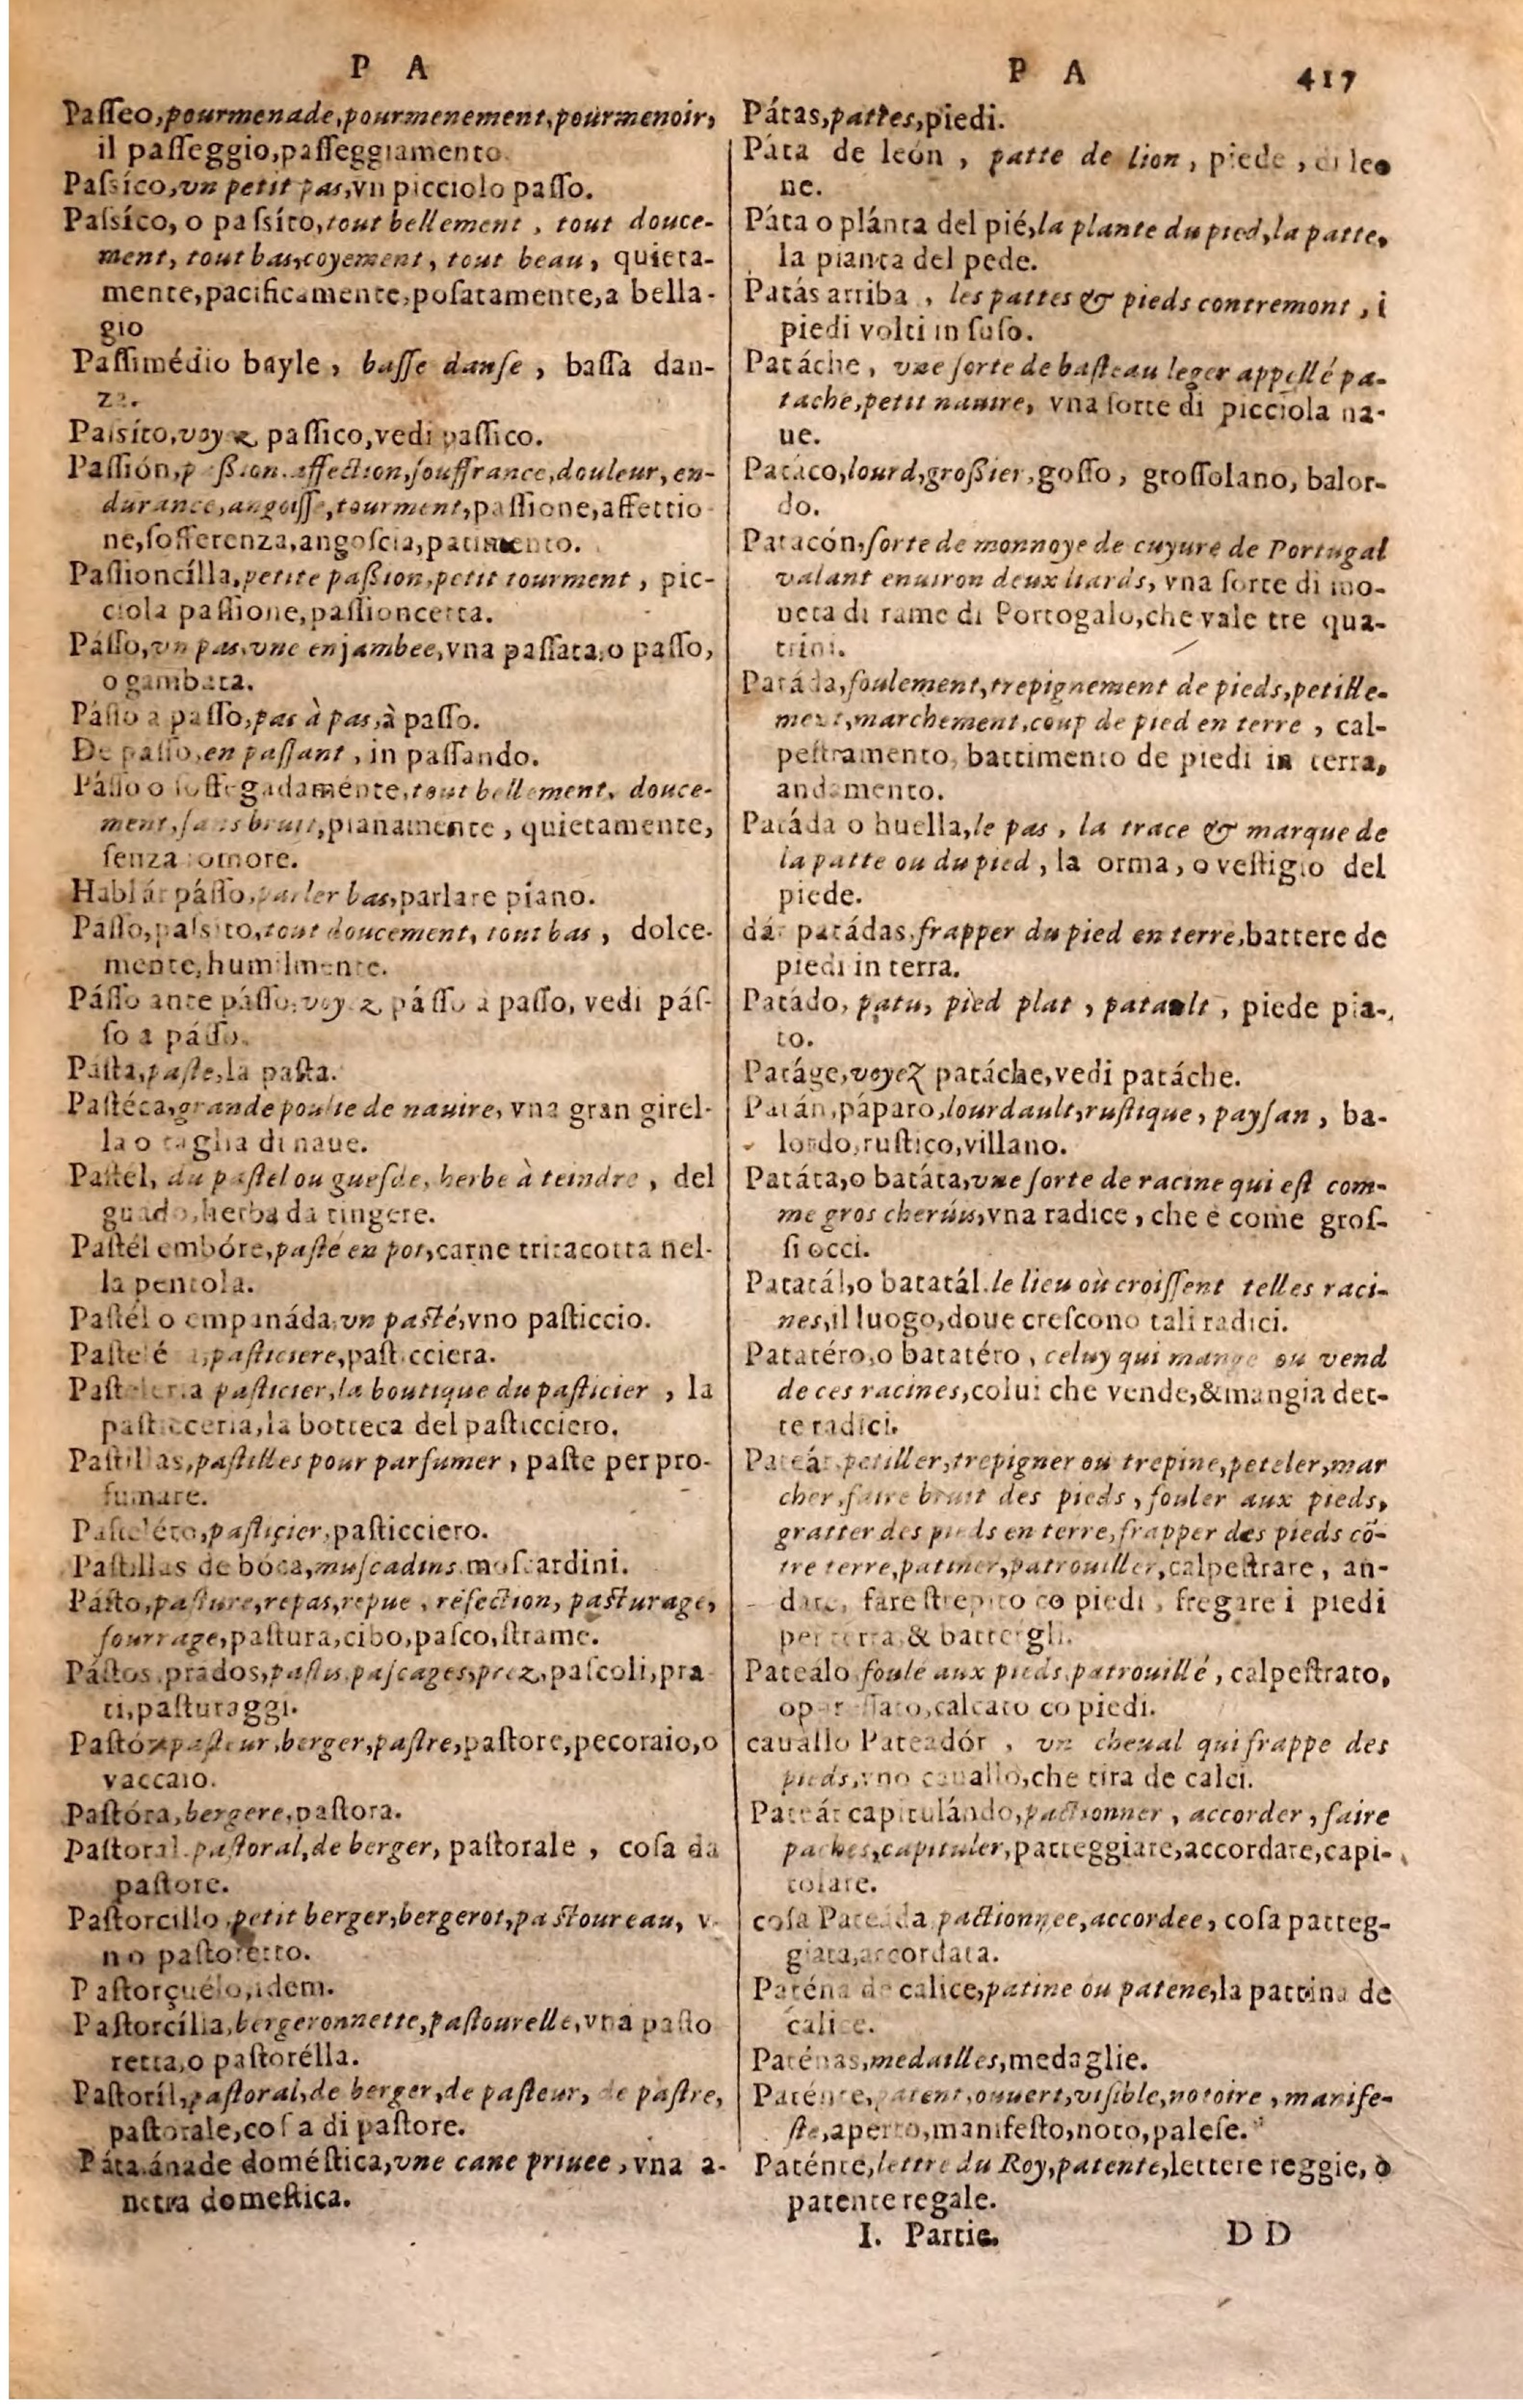 P A
Paſſeo, pourmenade, pourmenement, pourmenoir,
il paſſeggio, paſſeggiamento.
Paſsíco, vn petit pas, vn picciolo paſſo.
Paſsíco, o paſsíto, tout bellement, tout douce-
ment, tout bas, coyement, tout beau, quieta-
mente, pacificamente, poſatamente, a bella-
gio
Paſſimédio bayle, baſſe danſe, baſſa dan-
za.
Paſsíto, voyez paſſico, vedi paſſico.
Paſſión, paßion, affection, ſouffrance, douleur, en-
durance, angoiſſe, tourment, paſſione, affettio
ne, ſofferenza, angoſcia, patimento.
Paſſioncílla, petite paßion, petit tourment, pic-
ciola paſſione, paſſioncetta.
Páſſo, vn pas, vne enjambee, vna paſſata, o paſſo,
o gambata.
Páſſo a paſſo, pas à pas, à paſſo.
De paſſo, en paſſant, in paſſando.
Páſſo o ſoſſegadaménte, tout bellement, douce-
ment, ſans bruit, pianamente, quietamente,
ſenza romore.
Hablár páſſo, parler bas, parlare piano.
Paſſo, paſsito, tout doucement, tout bas, dolce-
mente, humilmente.
Páſſo ante páſſo, voyez páſſo à paſſo, vedi páſ-
ſo a páſſo.
Páſta, paſte, la paſta.
Paſtéca, grande poulie de nauire, vna gran girel-
la o taglia di naue.
Paſtél, du paſtel ou gueſde, herbe à teindre, del
guado, herba da tingere.
Paſtél embóre, paſté en pot, carne tritacotta nel-
la pentola.
Paſtél o empanáda, vn paſté, vno paſticcio.
Paſtelé a, paſticiere, paſticciera.
Paſteleria paſticier, la boutique du paſticier, la
paſticceria, la botteca del paſticciero.
Paſtillas, paſtilles pour parfumer, paſte per pro-
fumare.
Paſteléro, paſtiçier, paſticciero.
Paſtillas de bóca, muſcadins moſcardini.
Páſto, paſture, repas, repue, réfection, paſturage,
fourrage, paſtura, cibo, paſco, ſtrame.
Páſtos, prados, paſtis, paſcages, prez, paſcoli, pra
ti, paſturaggi.
Paſtór, paſteur, berger, paſtre, paſtore, pecoraio, o
vaccaio.
Paſtóra, bergere, paſtora.
Paſtoral, paſtoral, de berger, paſtorale, coſa da
paſtore.
Paſtorcillo, petit berger, bergerot, paſtoureau, v
no paſtoretto.
Paſtorçuélo, idem.
Paſtorcília, bergeronnette, paſtourelle, vna paſto
retta, o paſtorélla.
Paſtoríl, paſtoral, de berger, de paſteur, de paſtre,
paſtorale, coſa di paſtore.
Páta ánade doméſtica, vne cane priuee, vna a-
netra domeſtica.
P A 417
Pátas, pattes, piedi.
Páta de león, patte de lion, piede, di leo
ne.
Páta o plánta del pié, la plante du pied, la patte,
la pianta del pede.
Patás arriba, les pattes & pieds contremont, i
piedi volti in ſuſo.
Patáche, vne ſorte de baſteau leger appellé pa-
tache, petit nauire, vna ſorte di picciola na-
ue.
Patáco, lourd, großier, goſſo, groſſolano, balor-
do.
Patacón, ſorte de monnoye de cuyure de Portugal
valant enuiron deux liards, vna ſorte di mo-
neta di rame di Portogalo, che vale tre qua-
trini.
Patáda, foulement, trepignement de pieds, petille-
ment, marchement, coup de pied en terre, cal-
peſtramento, battimento de piedi in terra,
andamento.
Patáda o huella, le pas, la trace & marque de
la patte ou du pied, la orma, o veſtigio del
piede.
dár patádas, frapper du pied en terre, battere de
piedi in terra.
Patádo, patu, pied plat, patault, piede pia-
to.
Patáge, voyez patáche, vedi patáche.
Patán, páparo, lourdault, ruſtique, payſan, ba-
lordo, ruſtico, villano.
Patáta, o batáta, vne ſorte de racine qui eſt com-
me gros cherúis, vna radice, che è come groſ-
ſi occi.
Patatál, o batatál, le lieu où croiſſent telles raci-
nes, il luogo, doue creſcono tali radici.
Patatéro, o batatéro, celuy qui mange ou vend
de ces racines, colui che vende, & mangia det-
te radici.
Pateár, petiller, trepigner ou trepine, peteler, mar
cher, faire bruit des pieds, fouler aux pieds,
gratter des pieds en terre, frapper des pieds cõ-
tre terre, patiner, patrouiller, calpeſtrare, an-
dare, fare ſtrepito co piedi, fregare i piedi
per terra, & battergli.
Pateálo, foulé aux pieds, patrouillé, calpeſtrato,
o par ſſato, calcato co piedi.
cauállo Pateadór, vn cheual qui frappe des
pieds, vno cauallo, che tira de calci.
Pateár capitulándo, pactionner, accorder, faire
paches, capituler, patteggiare, accordare, capi-
tolare.
coſa Pateáda pactionnee, accordee, coſa patteg-
giata, accordata.
Paténa de calice, patine ou patene, la pattina de
calice.
Paténas, medailles, medaglie.
Paténte, patent, ouuert, viſible, notoire, manife-
ſte, aperto, manifeſto, noto, paleſe.
Paténte, lettre du Roy, patente, lettere reggie, ò
patente regale.
I. Partie. D D